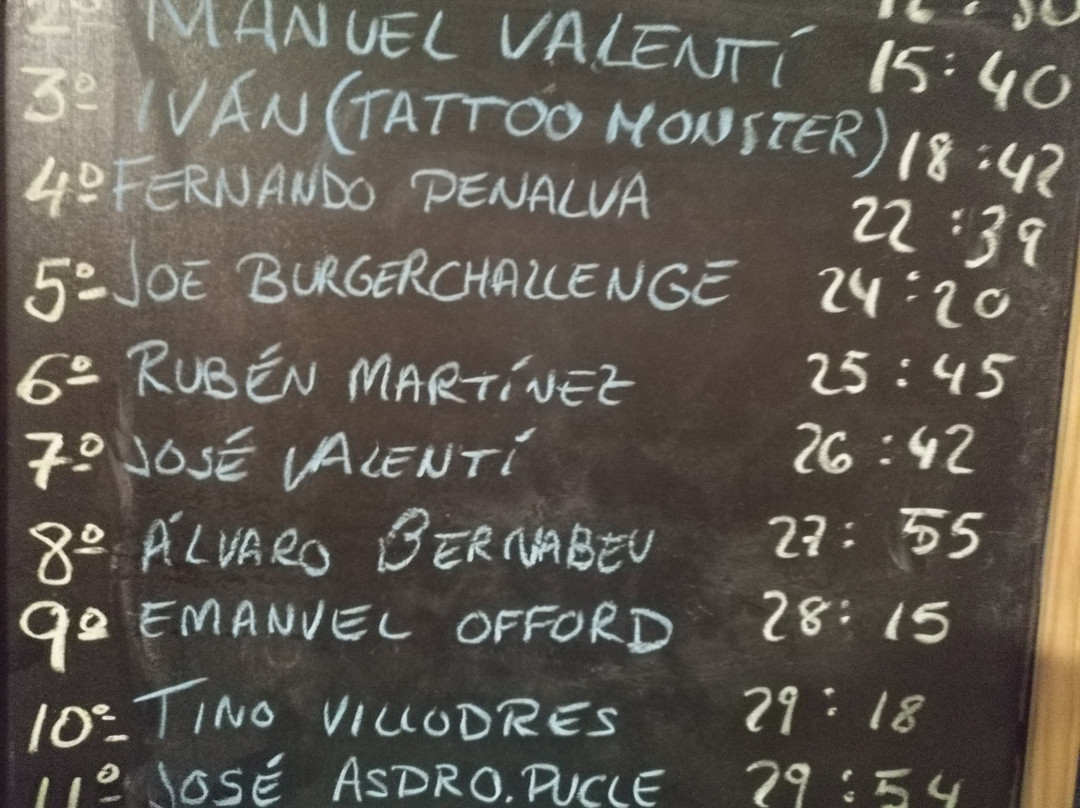 2º MANUEL VALENTÍ 15:40
3º IVÁN (TATTOO MONSTER) 18:42
4º FERNANDO PENALVA 22:39
5º JOE BURGERCHALLENGE 24:20
6º RUBÉN MARTÍNEZ 25:45
7º JOSÉ VALENTÍ 26:42
8º ÁLVARO BERNABEU 27:55
9º EMANUEL OFFORD 28:15
10º TINO VILLODRES 29:18
11º JOSÉ ASDRO.PUCLE 29:54